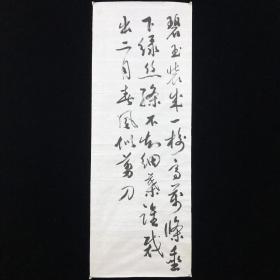 碧玉裝成一樹高萬條垂
下綠絲絛不知細葉誰裁
出二月春風似剪刀